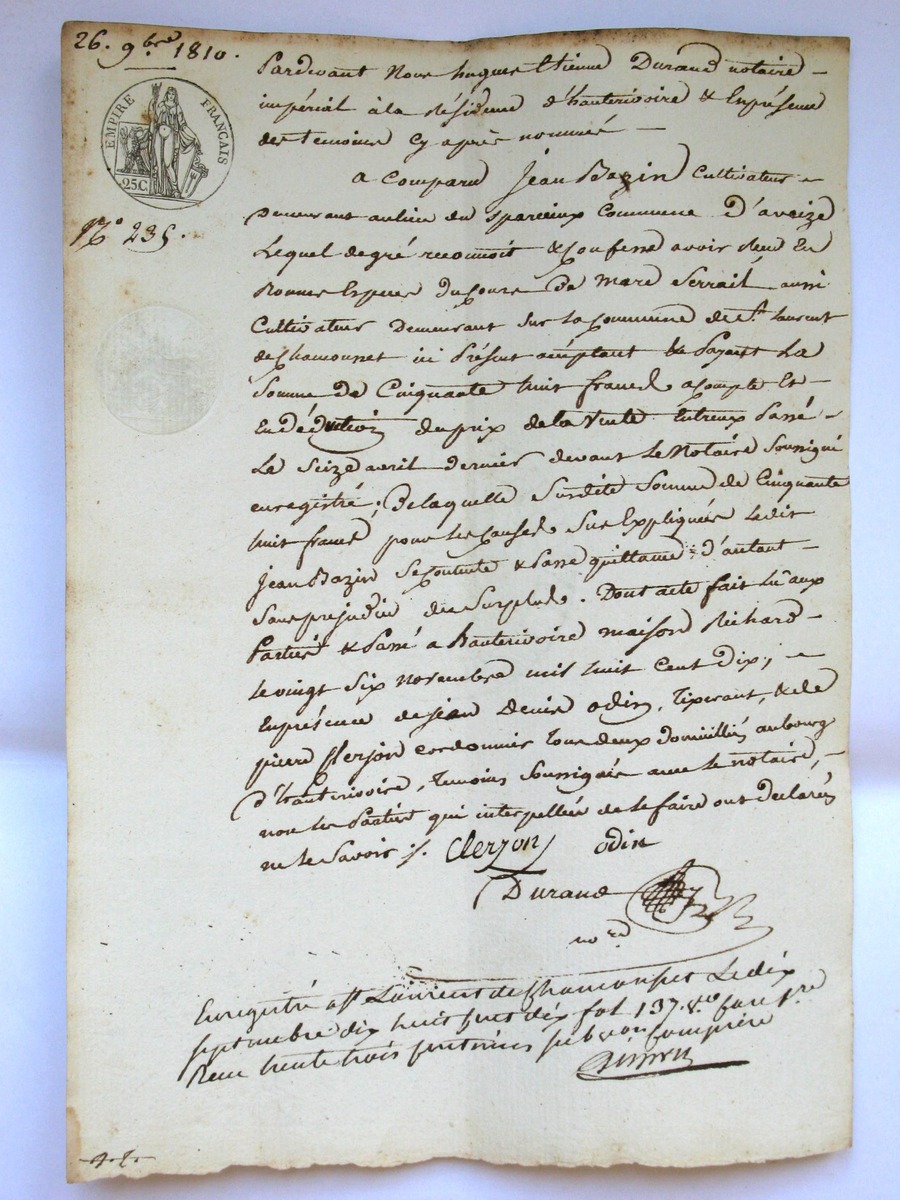 26. 9bre 1810.
EMPIRE FRANÇAIS
25C.
No 235.
Pardevant Nous hugues Etienne Durand notaire
impérial à la Résidence d'hauterivoire & En présence
des temoins cy après nommés
a Comparu jean Bazin Cultivateur
Demeurant au lieu du Commune D'aveize
Lequel de gré reconnoit & Confesse avoir reçu En
Bonnes Especes du Cours De marc Serrail aussi
Cultivateur Demeurant Sur la Commune de St. laurent
de Chamousset ici Présent acceptant & Payant La
Somme de Cinquante huit francs acompte Et
En déduction du prix de la Vente Entreux Passé
Le Seize avril dernier devant Le Notaire Soussigné
enregistré; De laquelle Surdite Somme de Cinquante
huit francs pour les Causes Sus Expliquées Ledit
jean Bazin Se Contente & Passe quittance d'autant
Sans préjudice du Surplus. Dont acte fait lû aux
Parties & Passé a hauterivoire maison Richard
le vingt Six novembre mil huit Cent Dix;
En présence de jean Denis odin, Tixerant, & de
pierre Clerjon Cordonnier Tous deux Domiciliés au bourg
D'hauterivoire, Temoins Soussignés avec le notaire,
non les Parties qui interpellées de le faire ont Declarés
ne le Savoir ./. Clerjon odin
Durand
nore
Enregistré a St Laurent de Chamousset Le dix
septembre dix huit cent dix fol 137 vo Case 1re
Recu trente trois centimes subvon Comprise